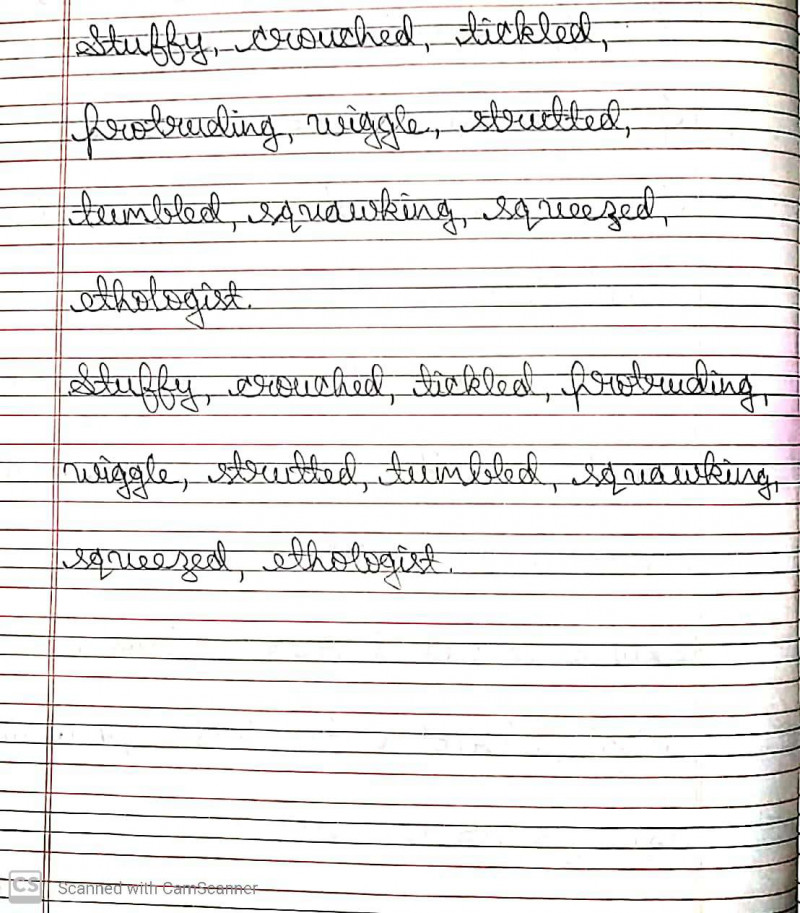 Stuffy, crouched, tickled,
protruding, wiggle, strutted,
tumbled, squawking, squeezed,
ethologist.
Stuffy, crouched, tickled, protruding,
wiggle, strutted, tumbled, squawking,
squeezed, ethologist.
CS Scanned with CamScanner